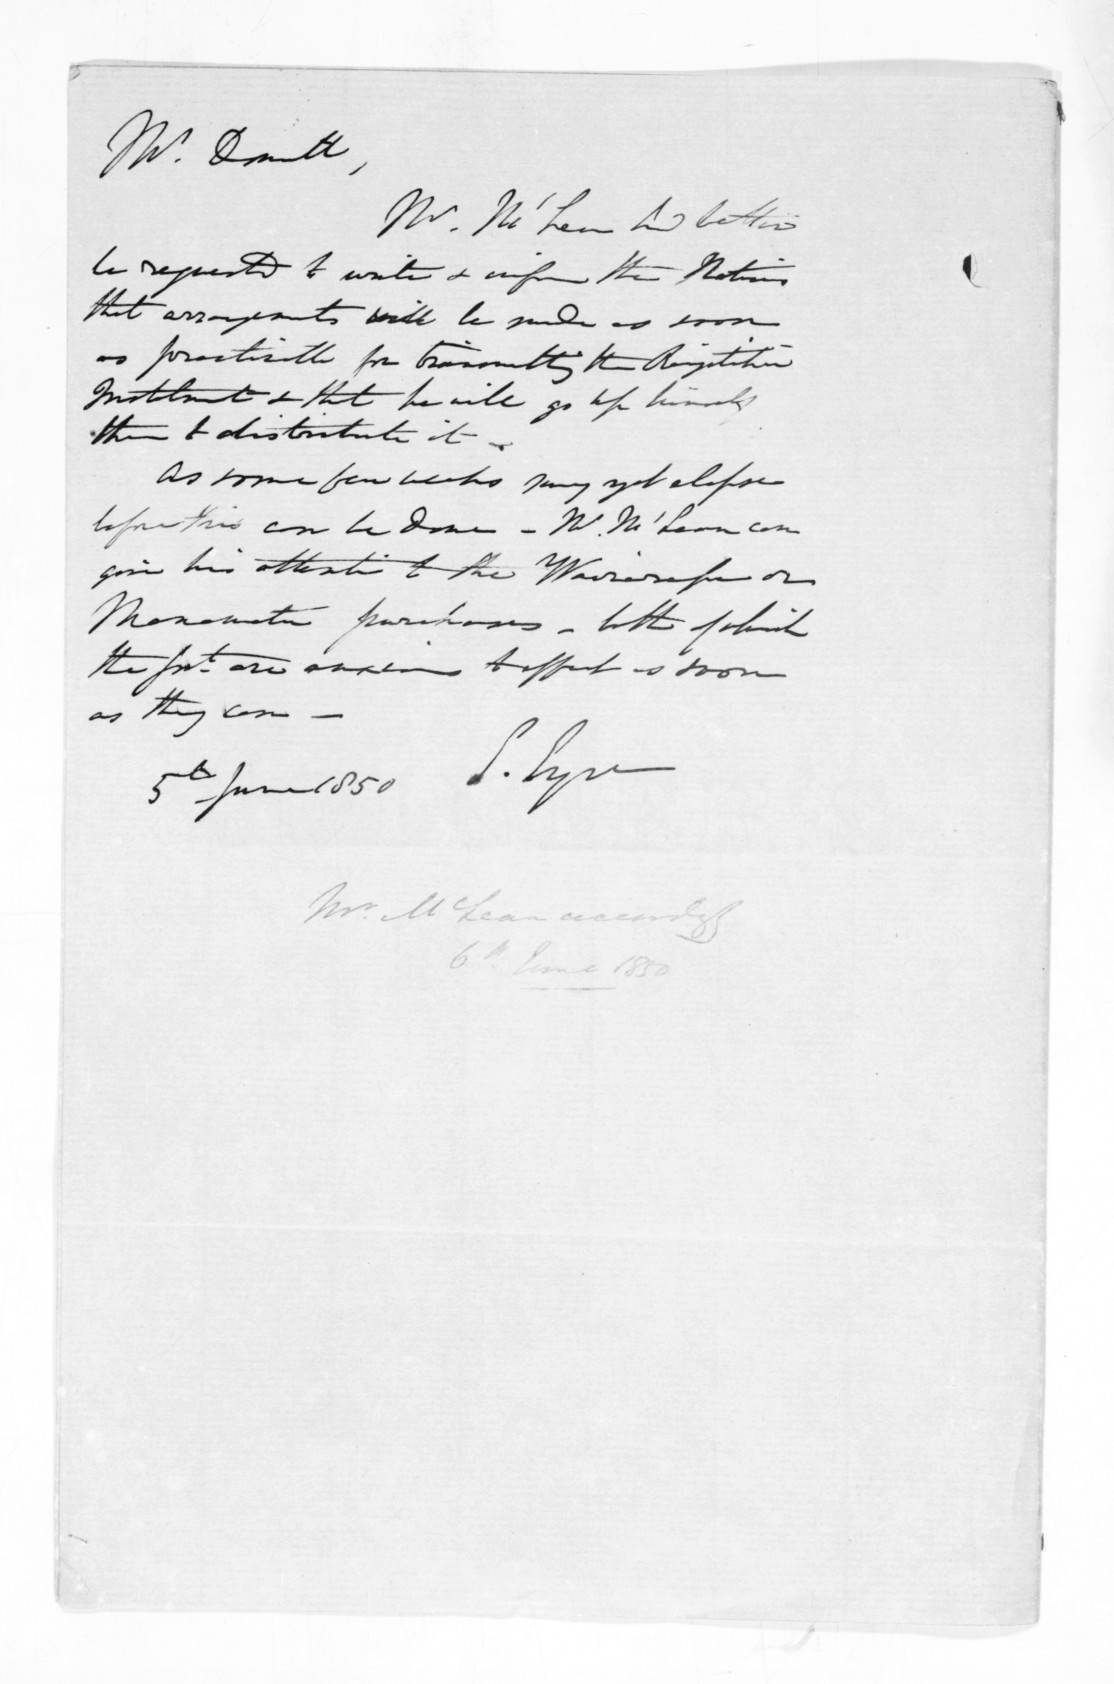 Mr. Domett,
Mr. McLean had better
be requested to write & inform the Natives
that arrangements will be made as soon
as practicable for transmitting the Rangitikei
Instalment & that he will go up himself
then to distribute it -
As some few weeks may yet elapse
before this can be done - Mr. McLean can
give his attention to the Wairarapa or
Manawatu purchases - both of which
the Govt. are anxious to effect as soon
as they can -
E. Eyre
5th June 1850
Mr. McLean accordgly
6th June 1850